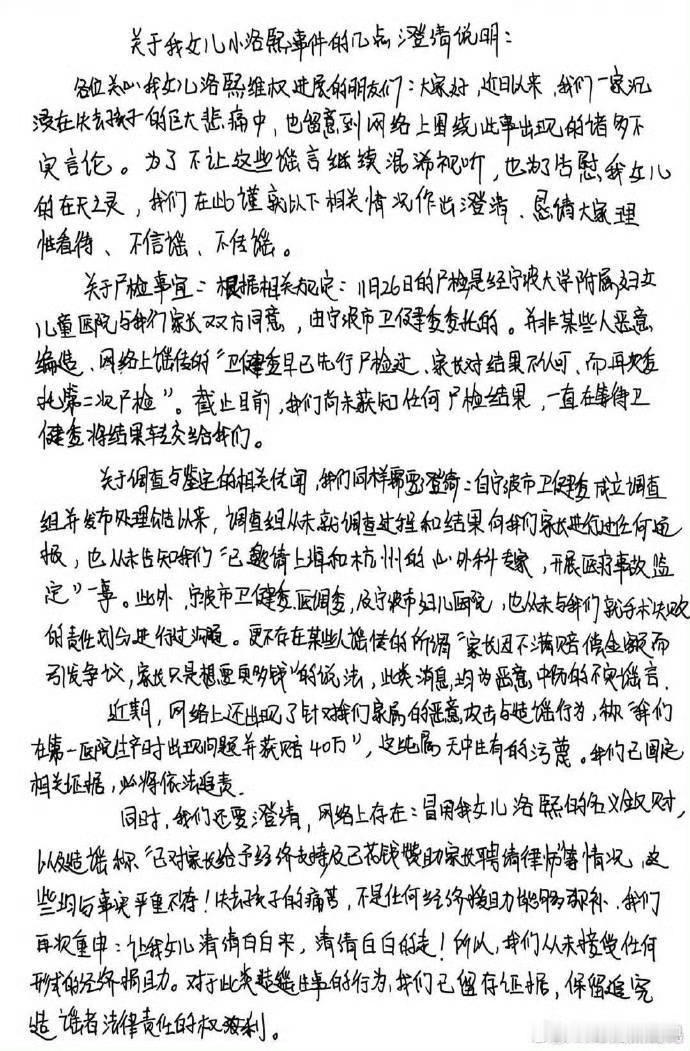 关于我女儿小洛熙事件的几点澄清说明：
各位关心我女儿洛熙维权进展的朋友们：大家好，近日以来，我们一家沉
浸在失去孩子的巨大悲痛中，也留意到网络上围绕此事出现的诸多不
实言论。为了不让这些谣言继续混淆视听，也为了告慰我女儿
的在天之灵，我们在此谨就以下相关情况作出澄清，恳请大家理
性看待、不信谣、不传谣。
关于尸检事宜：根据相关规定：11月26日的尸检是经宁波大学附属妇女
儿童医院与我们家长双方同意，由宁波市卫健委委托的。并非某些人恶意
编造、网络上谣传的“卫健委早已先行尸检过、家长对结果不认可、而再次委
托第二次尸检”。截止目前，我们尚未获知任何尸检结果，一直在等待卫
健委将结果转交给我们。
关于调查与鉴定的相关传闻，我们同样需要澄清：自宁波市卫健委成立调查
组并发布处理通告以来，调查组从未就调查过程和结果向我们家长进行过任何通
报，也从未告知我们“已邀请上海和杭州的心外科专家，开展医疗事故监
定”一事。此外，宁波市卫健委、医调委，及宁波市妇儿医院，也从未与我们就手术失败
的责任划分进行过沟通。更不存在某些人谣传的所谓“家长因不满赔偿金额而
引发争议，家长只是想要更多钱”的说法，此类消息，均为恶意中伤的不实谣言。
近期，网络上还出现了针对我们家属的恶意攻击与造谣行为，称“我们
在第一医院生产时出现问题并获赔40万”，这纯属无中生有的污蔑。我们已固定
相关证据，必将依法追责。
同时，我们还要澄清，网络上存在：冒用我女儿洛熙的名义敛财，
以及造谣称“已对家长给予经济支持及已花钱援助家长聘请律师”等情况，这
些均与事实严重不符！失去孩子的痛苦，不是任何经济援助能够弥补，我们
再次重申：让我女儿清清白白来，清清白白的走！所以，我们从未接受任何
形式的经济捐助。对于此类造谣生事的行为，我们已留存证据，保留追究
造谣者法律责任的权利。